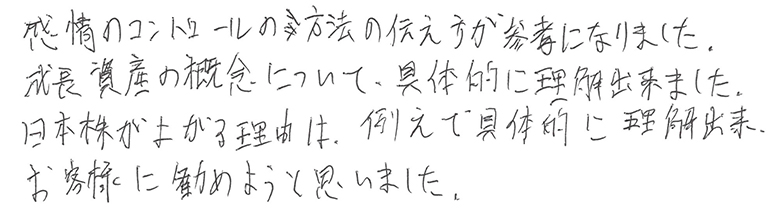 感情のコントロールの方法の伝え方が参考になりました。
成長資産の概念について、具体的に理解出来ました。
日本株が上がる理由は、例えで具体的に理解出来、
お客様に勧めようと思いました。